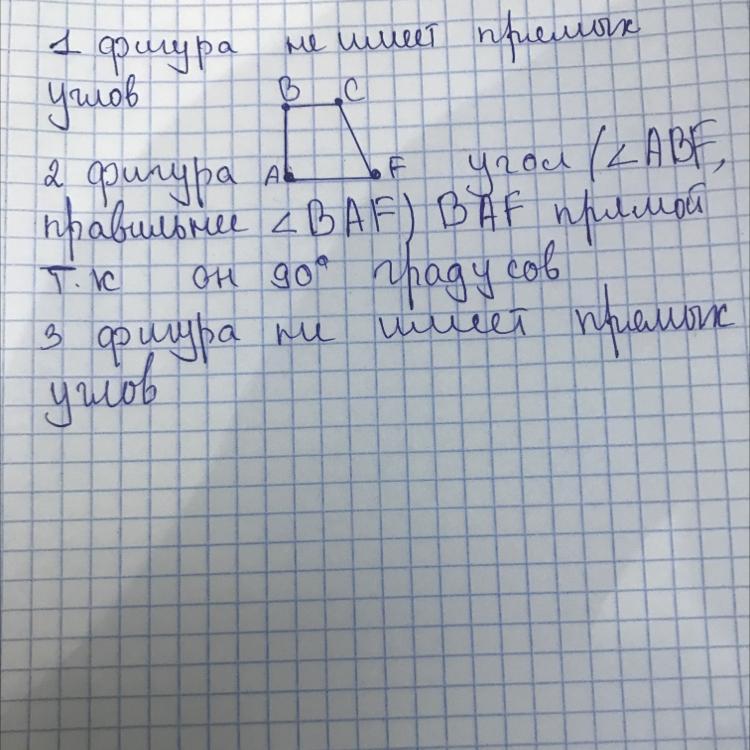 1 фигура не имеет прямых
углов B C
2 фигура A F угол (∠ABF,
правильнее ∠BAF) BAF прямой
т.к он 90° градусов
3 фигура не имеет прямых
углов